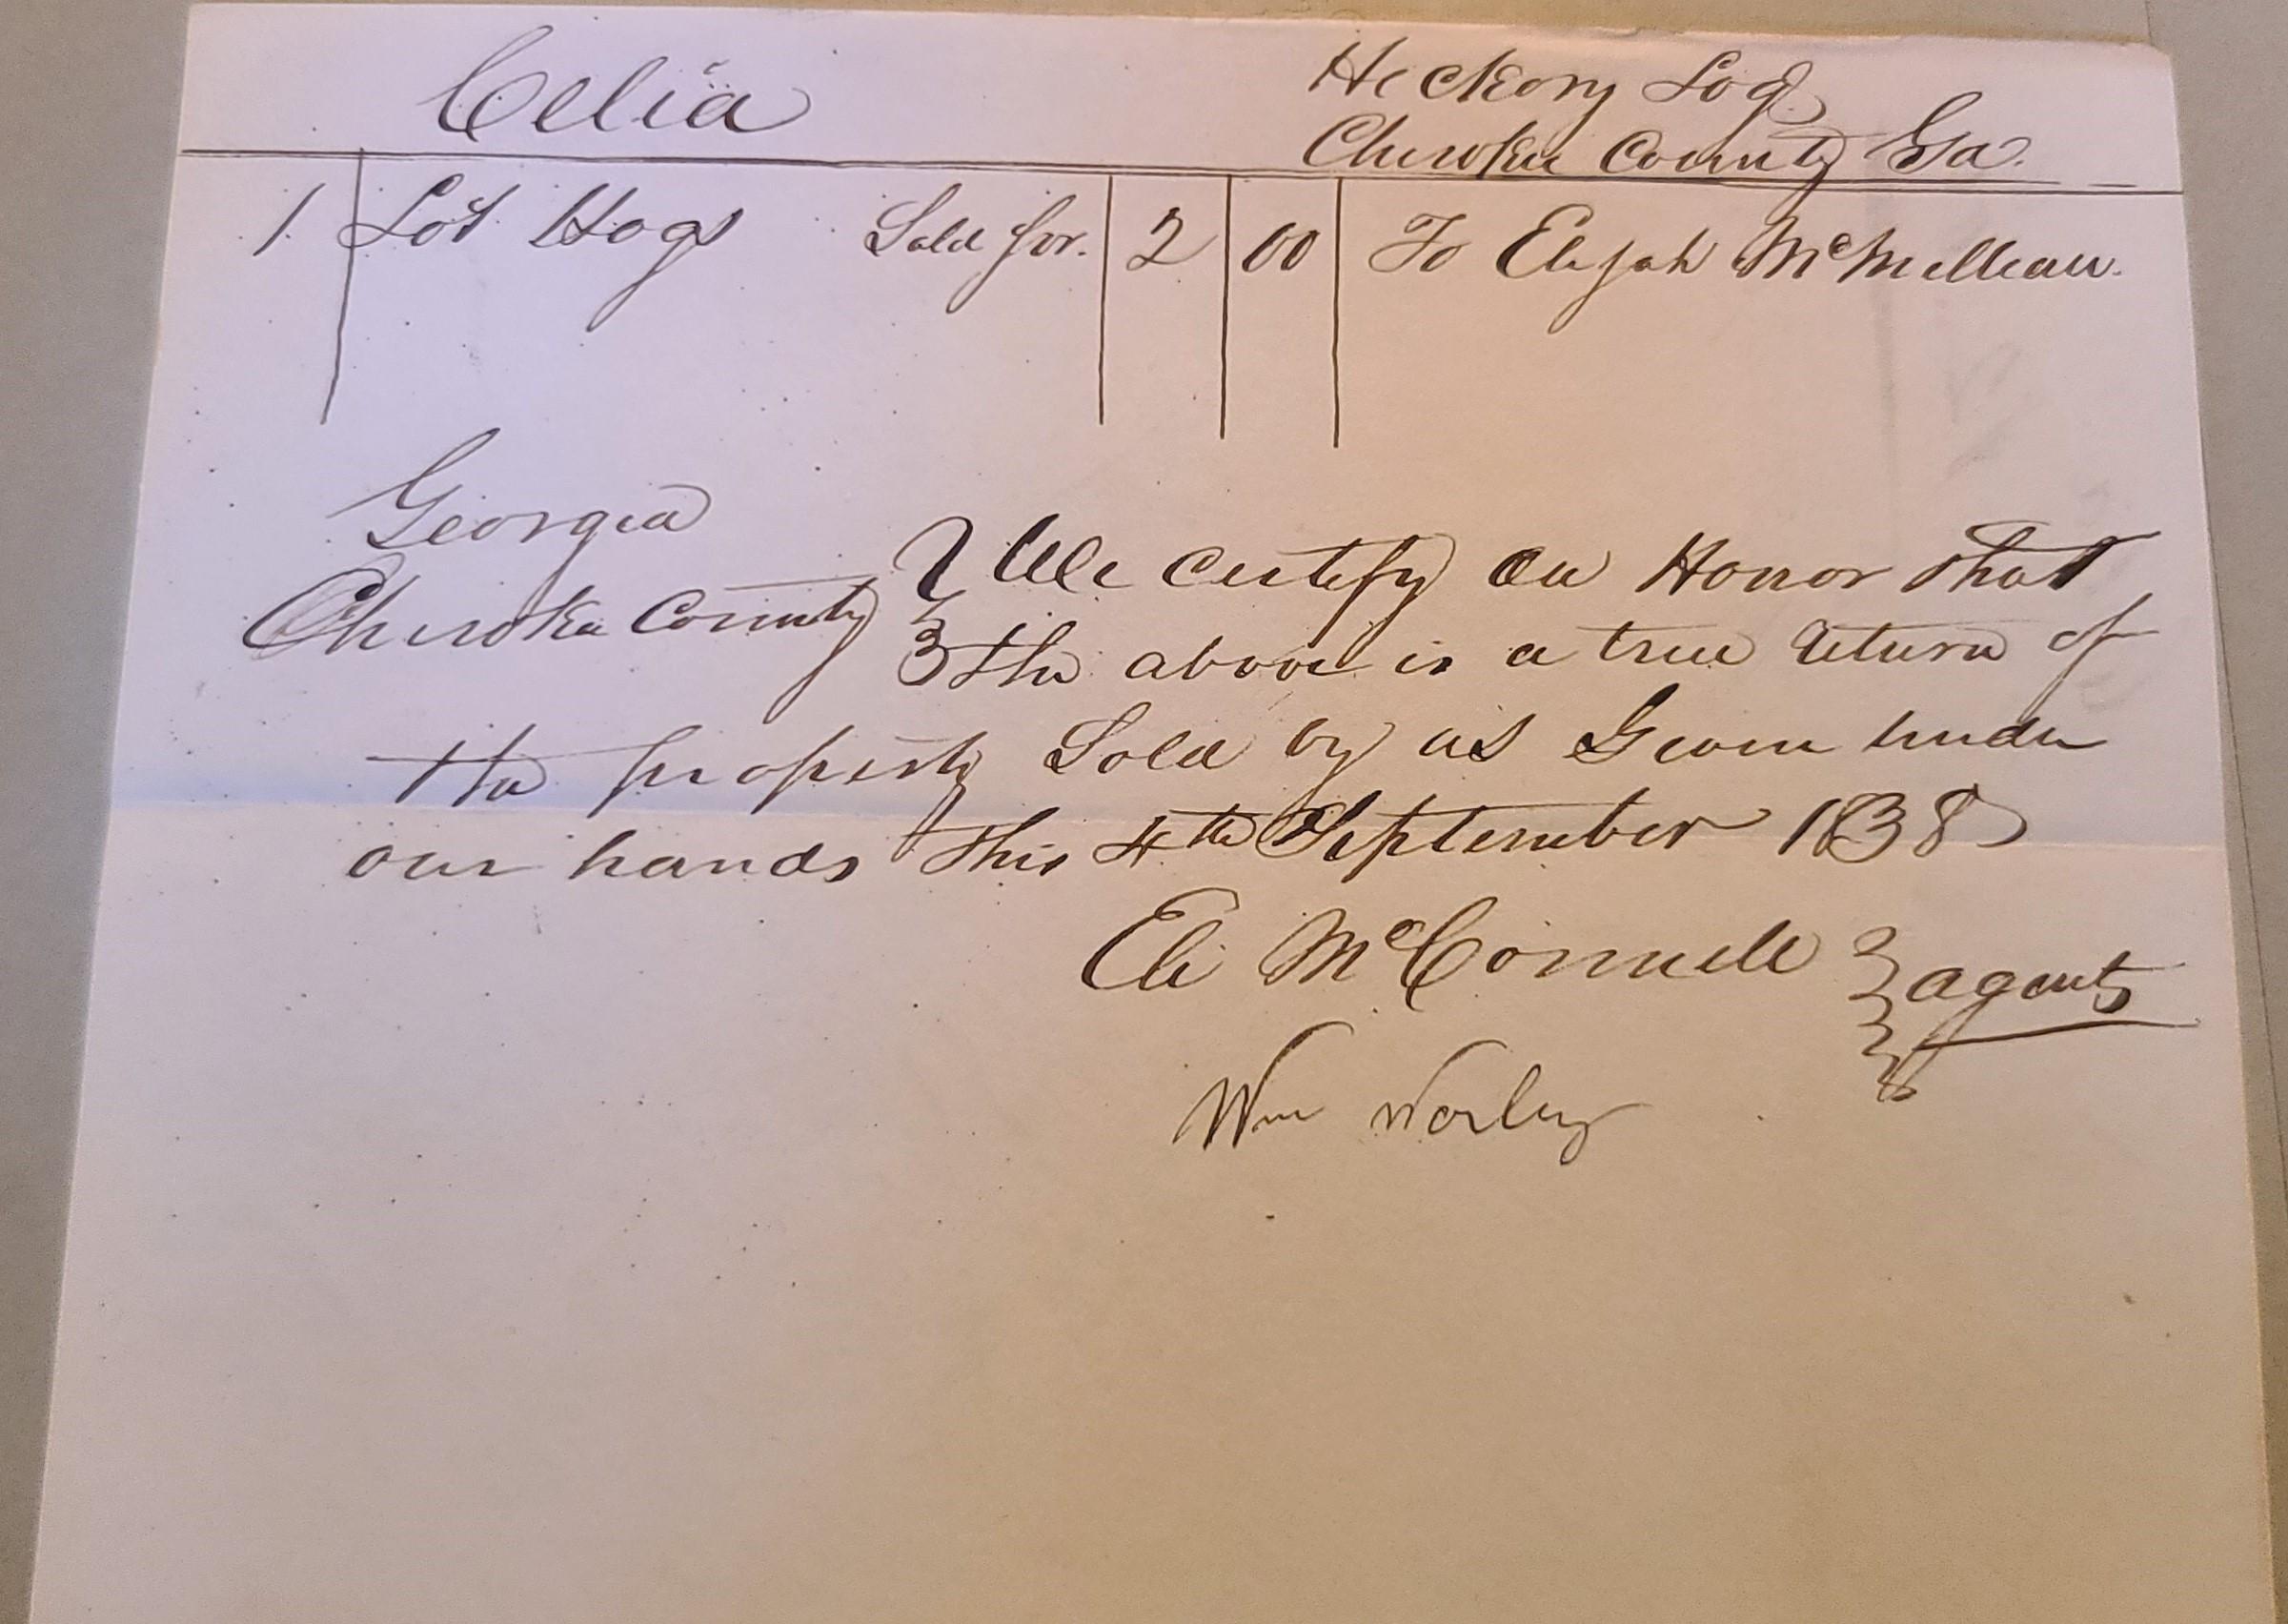 Celia
Hickory Log
Cherokee County Ga.
1 Lot Hogs Sold for. 2 00 To Elijah McMillean.
Georgia
Cherokee County } We certify on Honor that
the above is a true return of
the property Sold by us Given under
our hands this 4th September 1838
Eli McConnell } agents
Wm Worley